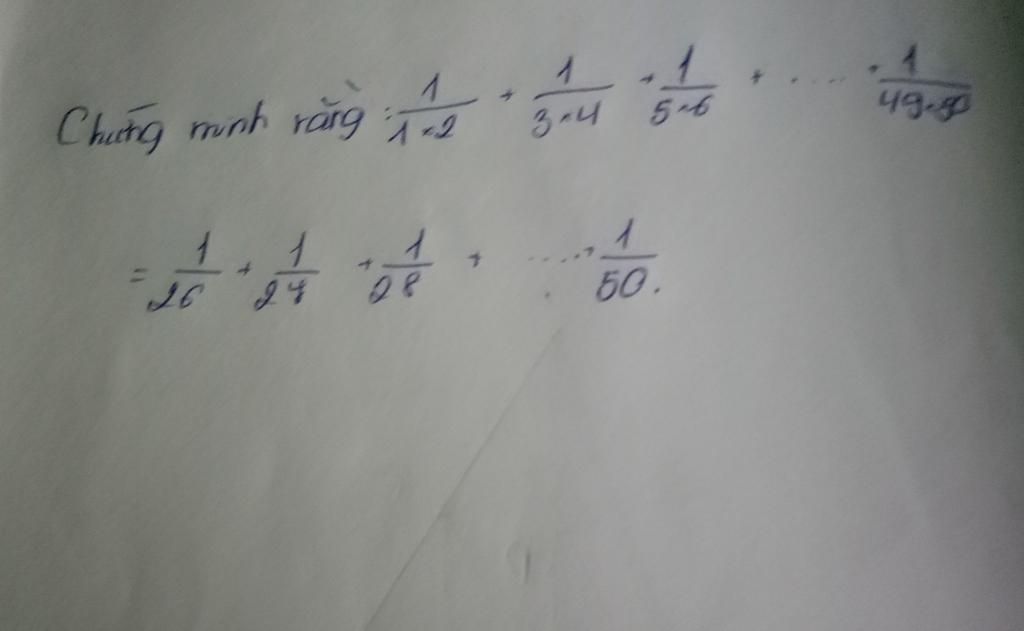 Chứng minh rằng: 1/1×2 + 1/3×4 + 1/5×6 + .... + 1/49×50
= 1/26 + 1/27 + 1/28 + ....+ 1/50.